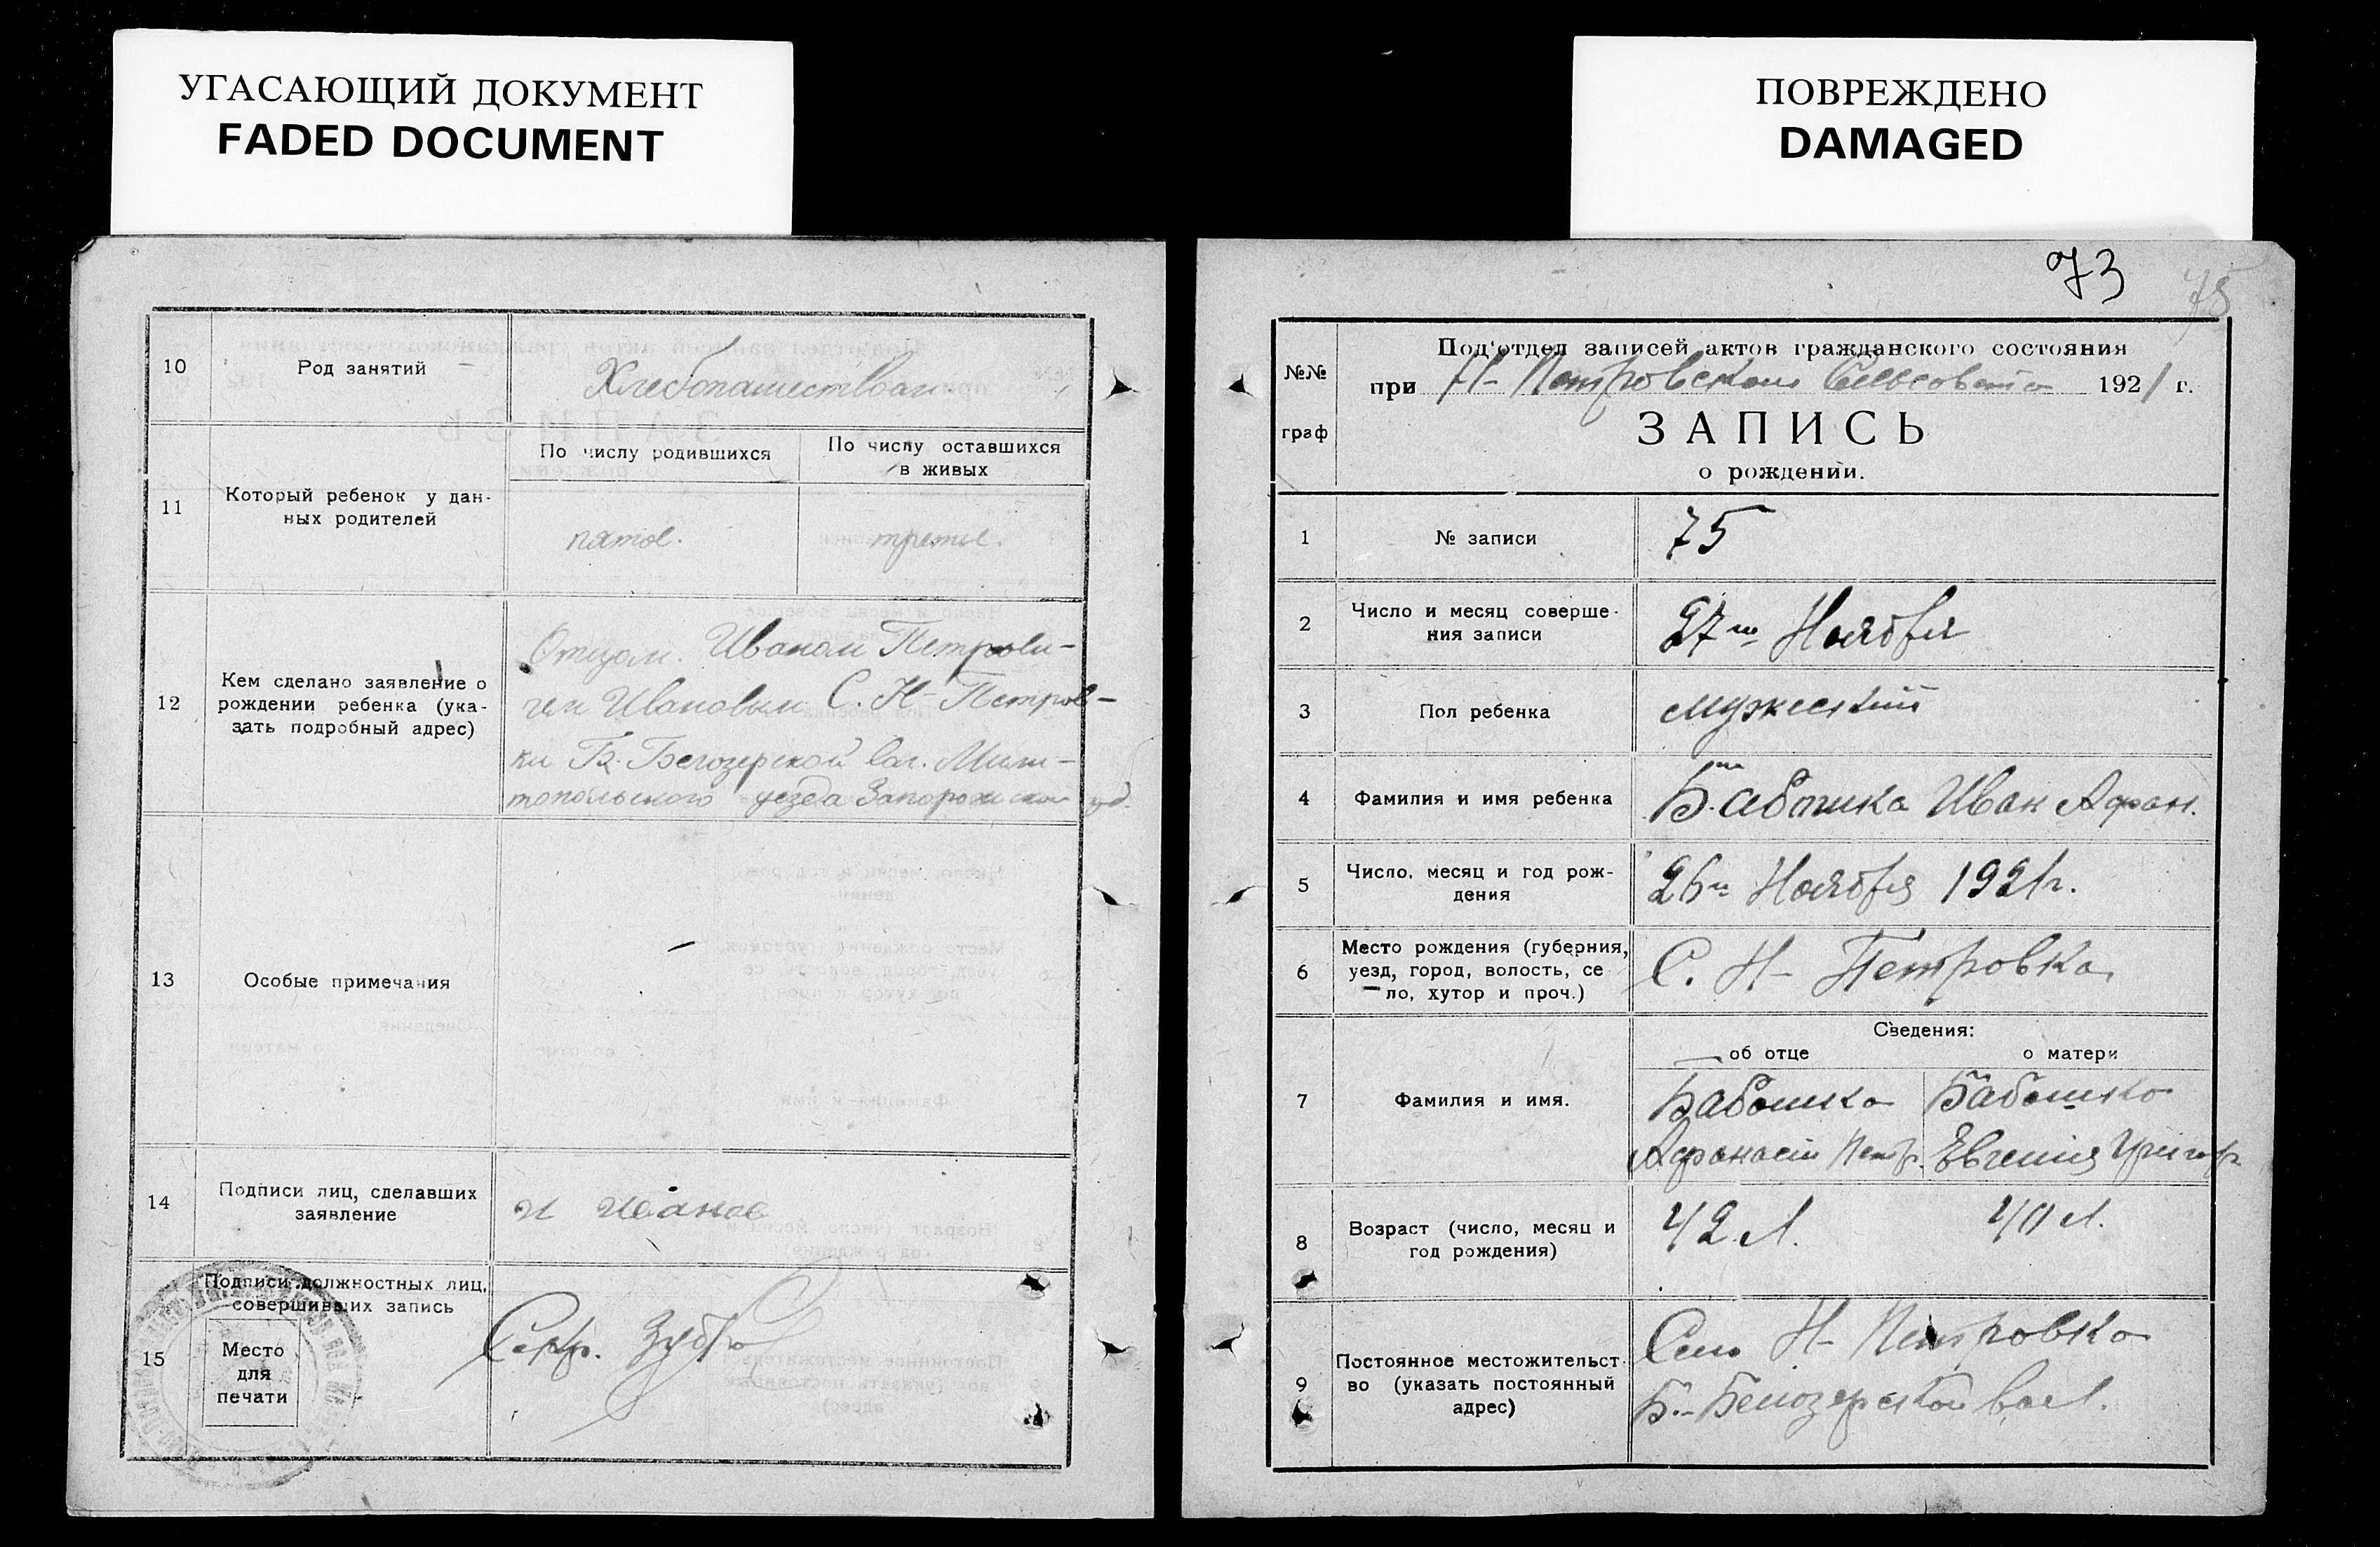 УГАСАЮЩИЙ ДОКУМЕНТ
FADED DOCUMENT
10 Род занятий Хлебопашеством
11 Который ребенок у дан-
ных родителей
По числу родившихся
По числу оставшихся
в живых
пятое.
третье.
12 Кем сделано заявление о
рождении ребенка (ука-
зать подробный адрес)
Отцом. Иваном Петрови-
чем Ивановым С. Н-Петров-
ки Б. Белозерской вол. Мили-
топольского уезда Запорожской
13 Особые примечания
–
14 Подписи лиц, сделавших
заявление
И Иванов
15 Подписи должностных лиц,
совершивших запись
Место
для
печати
Секр.
ПОВРЕЖДЕНО
DAMAGED
73
75
№№
граф
Под'отдел записей актов гражданского состояния
при Н-Петровском Сельсовете 1921 г.
ЗАПИСЬ
о рождении.
1 № записи 75
2 Число и месяц соверше-
ния записи
27го Ноября
3 Пол ребенка мужеский
4 Фамилия и имя ребенка Бабошка Иван Афан.
5 Число, месяц и год рож-
дения
26го Ноября 1921г.
6 Место рождения (губерния,
уезд, город, волость, се-
ло, хутор и проч.)
С. Н-Петровка
Сведения:
об отце
о матери
7 Фамилия и имя.
Бабошка
Афанасий Петр.
Бабошко
Евгения Григор
8 Возраст (число, месяц и
год рождения)
42 л.
40 л.
9 Постоянное местожительст-
во (указать постоянный
адрес)
Село Н-Петровка
Б.-Белозерской вол.